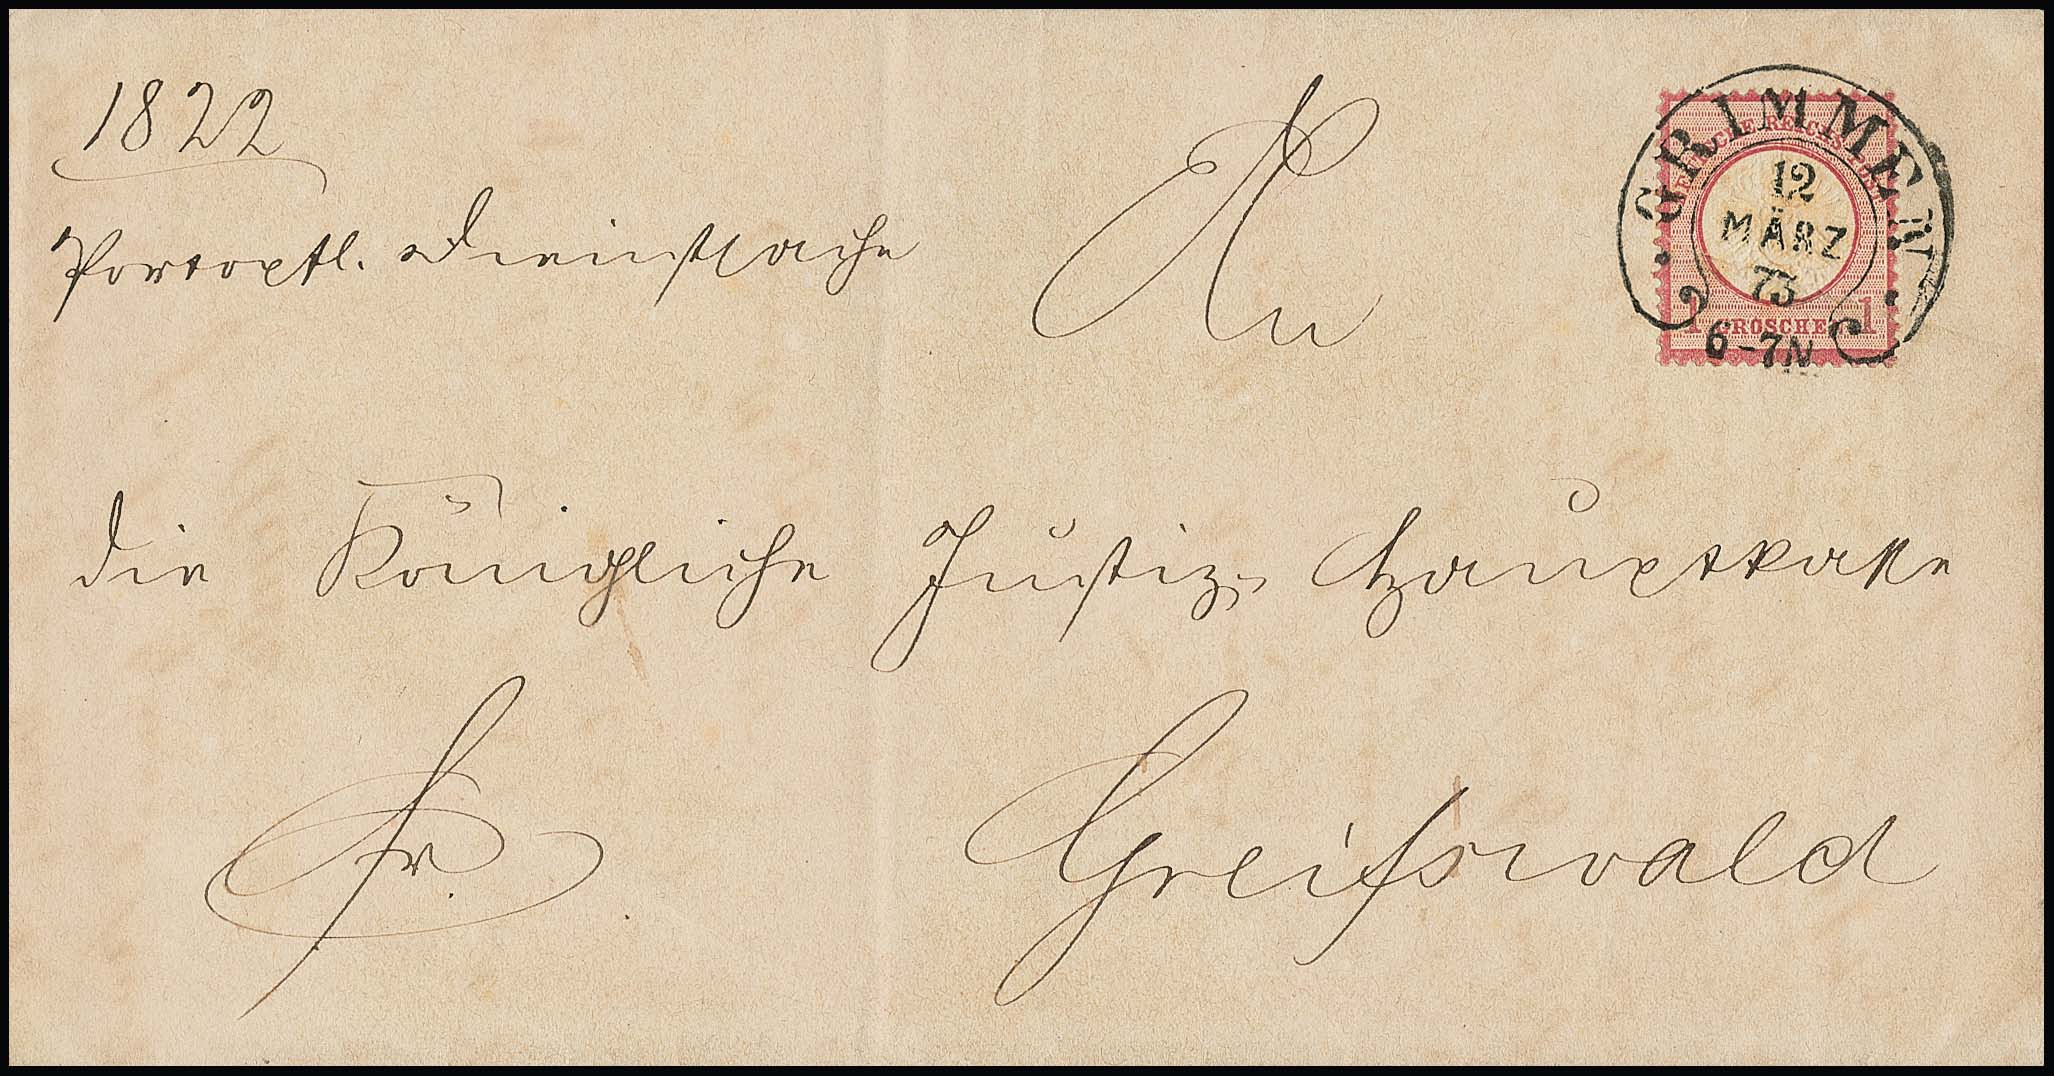 1822
Portopfl. Dienstsache
An
die Königliche Justiz-Hauptkasse
Fr.
Greifswald
DEUTSCHE REICHS-POST
1 GROSCHEN 1
GRIMMEN
12
MÄRZ
73
6-7N